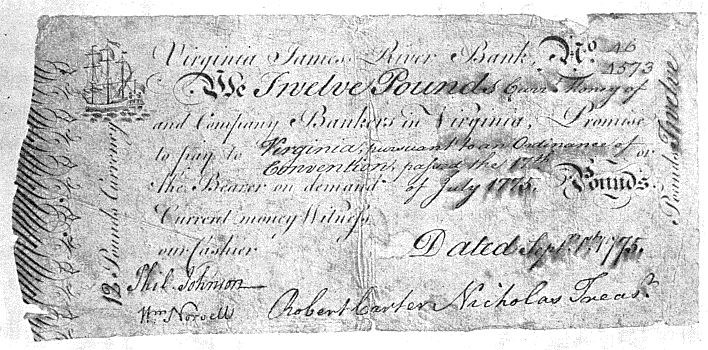 Virginia James River Bank, No. A6
A573
We Twelve Pounds Curr. Money of
and Company Bankers in Virginia, Promise
to pay to Virginia, pursuant to an Ordinance of or
Convention, passed the 17th
the Bearer on demand of July 1775. Pounds
Current money Witness
our Cashier
Dated Sept. 1st. 1775.
Phil. Johnson
Wm Norvell
Robert Carter Nicholas Treasr.
12 Pounds Currency
Pounds Twelve